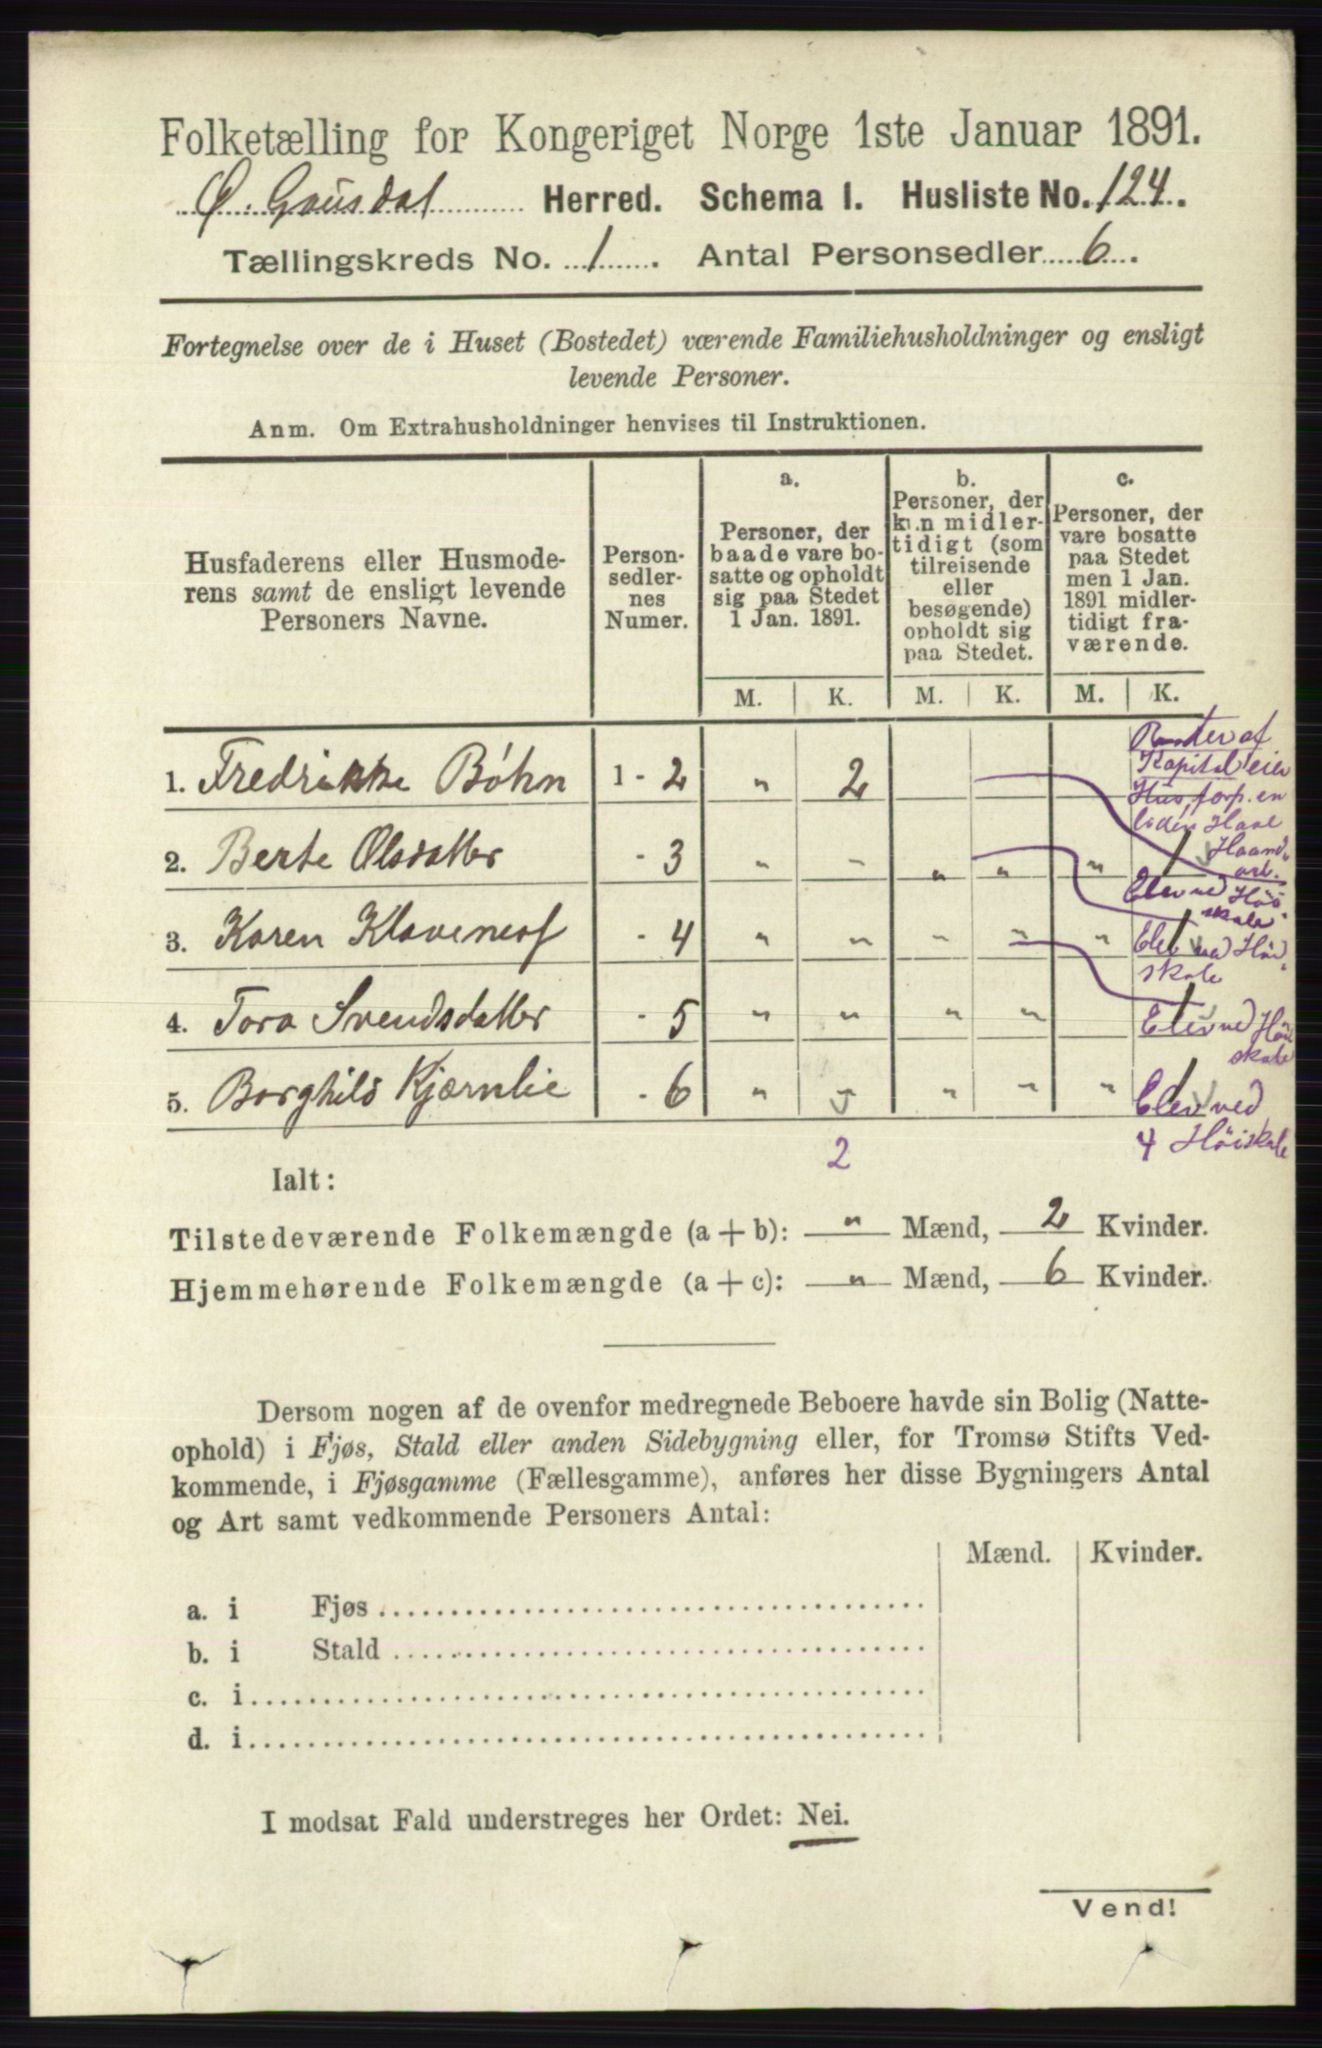 Folketælling for Kongeriget Norge 1ste Januar 1891.
Ø. Gausdal Herred. Schema I. Husliste No. 124.
Tællingskreds No. 1. Antal Personsedler 6.
Fortegnelse over de i Huset (Bostedet) værende Familiehusholdninger og ensligt
levende Personer.
Anm. Om Extrahusholdninger henvises til Instruktionen.
Husfaderens eller Husmode-
rens samt de ensligt levende
Personers Navne.
Person-
sedler-
nes
Numer.
a.
Personer, der
baade vare bo-
satte og opholdt
sig paa Stedet
1 Jan. 1891.
b.
Personer, der
kun midler-
tidigt (som
tilreisende
eller
besøgende)
opholdt sig
paa Stedet.
c.
Personer, der
vare bosatte
paa Stedet
men 1 Jan.
1891 midler-
tidigt fra-
værende.
M. K. M. K. M. K.
1. Fredrikke Bøhn 1 - 2 " 2
af
Kapitaleier
Hus, forp. en
liden Have
Haand.
arb.
2. Berte Olsdatter - 3 " - " " " 1
Elev ved Høi
skole
3. Karen - 4 " " " " " 1
Elev ved Høi
skole
4. Tora Svendsdatter - 5 " " " " 1
Elev ved Høi
skole
5. Borghild Kjærnlie - 6 " " " " " 1
Elev ved
Høiskole
2 4
Ialt:
Tilstedeværende Folkemængde (a + b): " Mænd, 2 Kvinder.
Hjemmehørende Folkemængde (a + c): " Mænd, 6 Kvinder.
Dersom nogen af de ovenfor medregnede Beboere havde sin Bolig (Natte-
ophold) i Fjøs, Stald eller anden Sidebygning eller, for Tromsø Stifts Ved-
kommende, i Fjøsgamme (Fællesgamme), anføres her disse Bygningers Antal
og Art samt vedkommende Personers Antal:
Mænd. Kvinder.
a. i Fjøs
b. i Stald
c. i
d. i
I modsat Fald understreges her Ordet: Nei.
Vend!